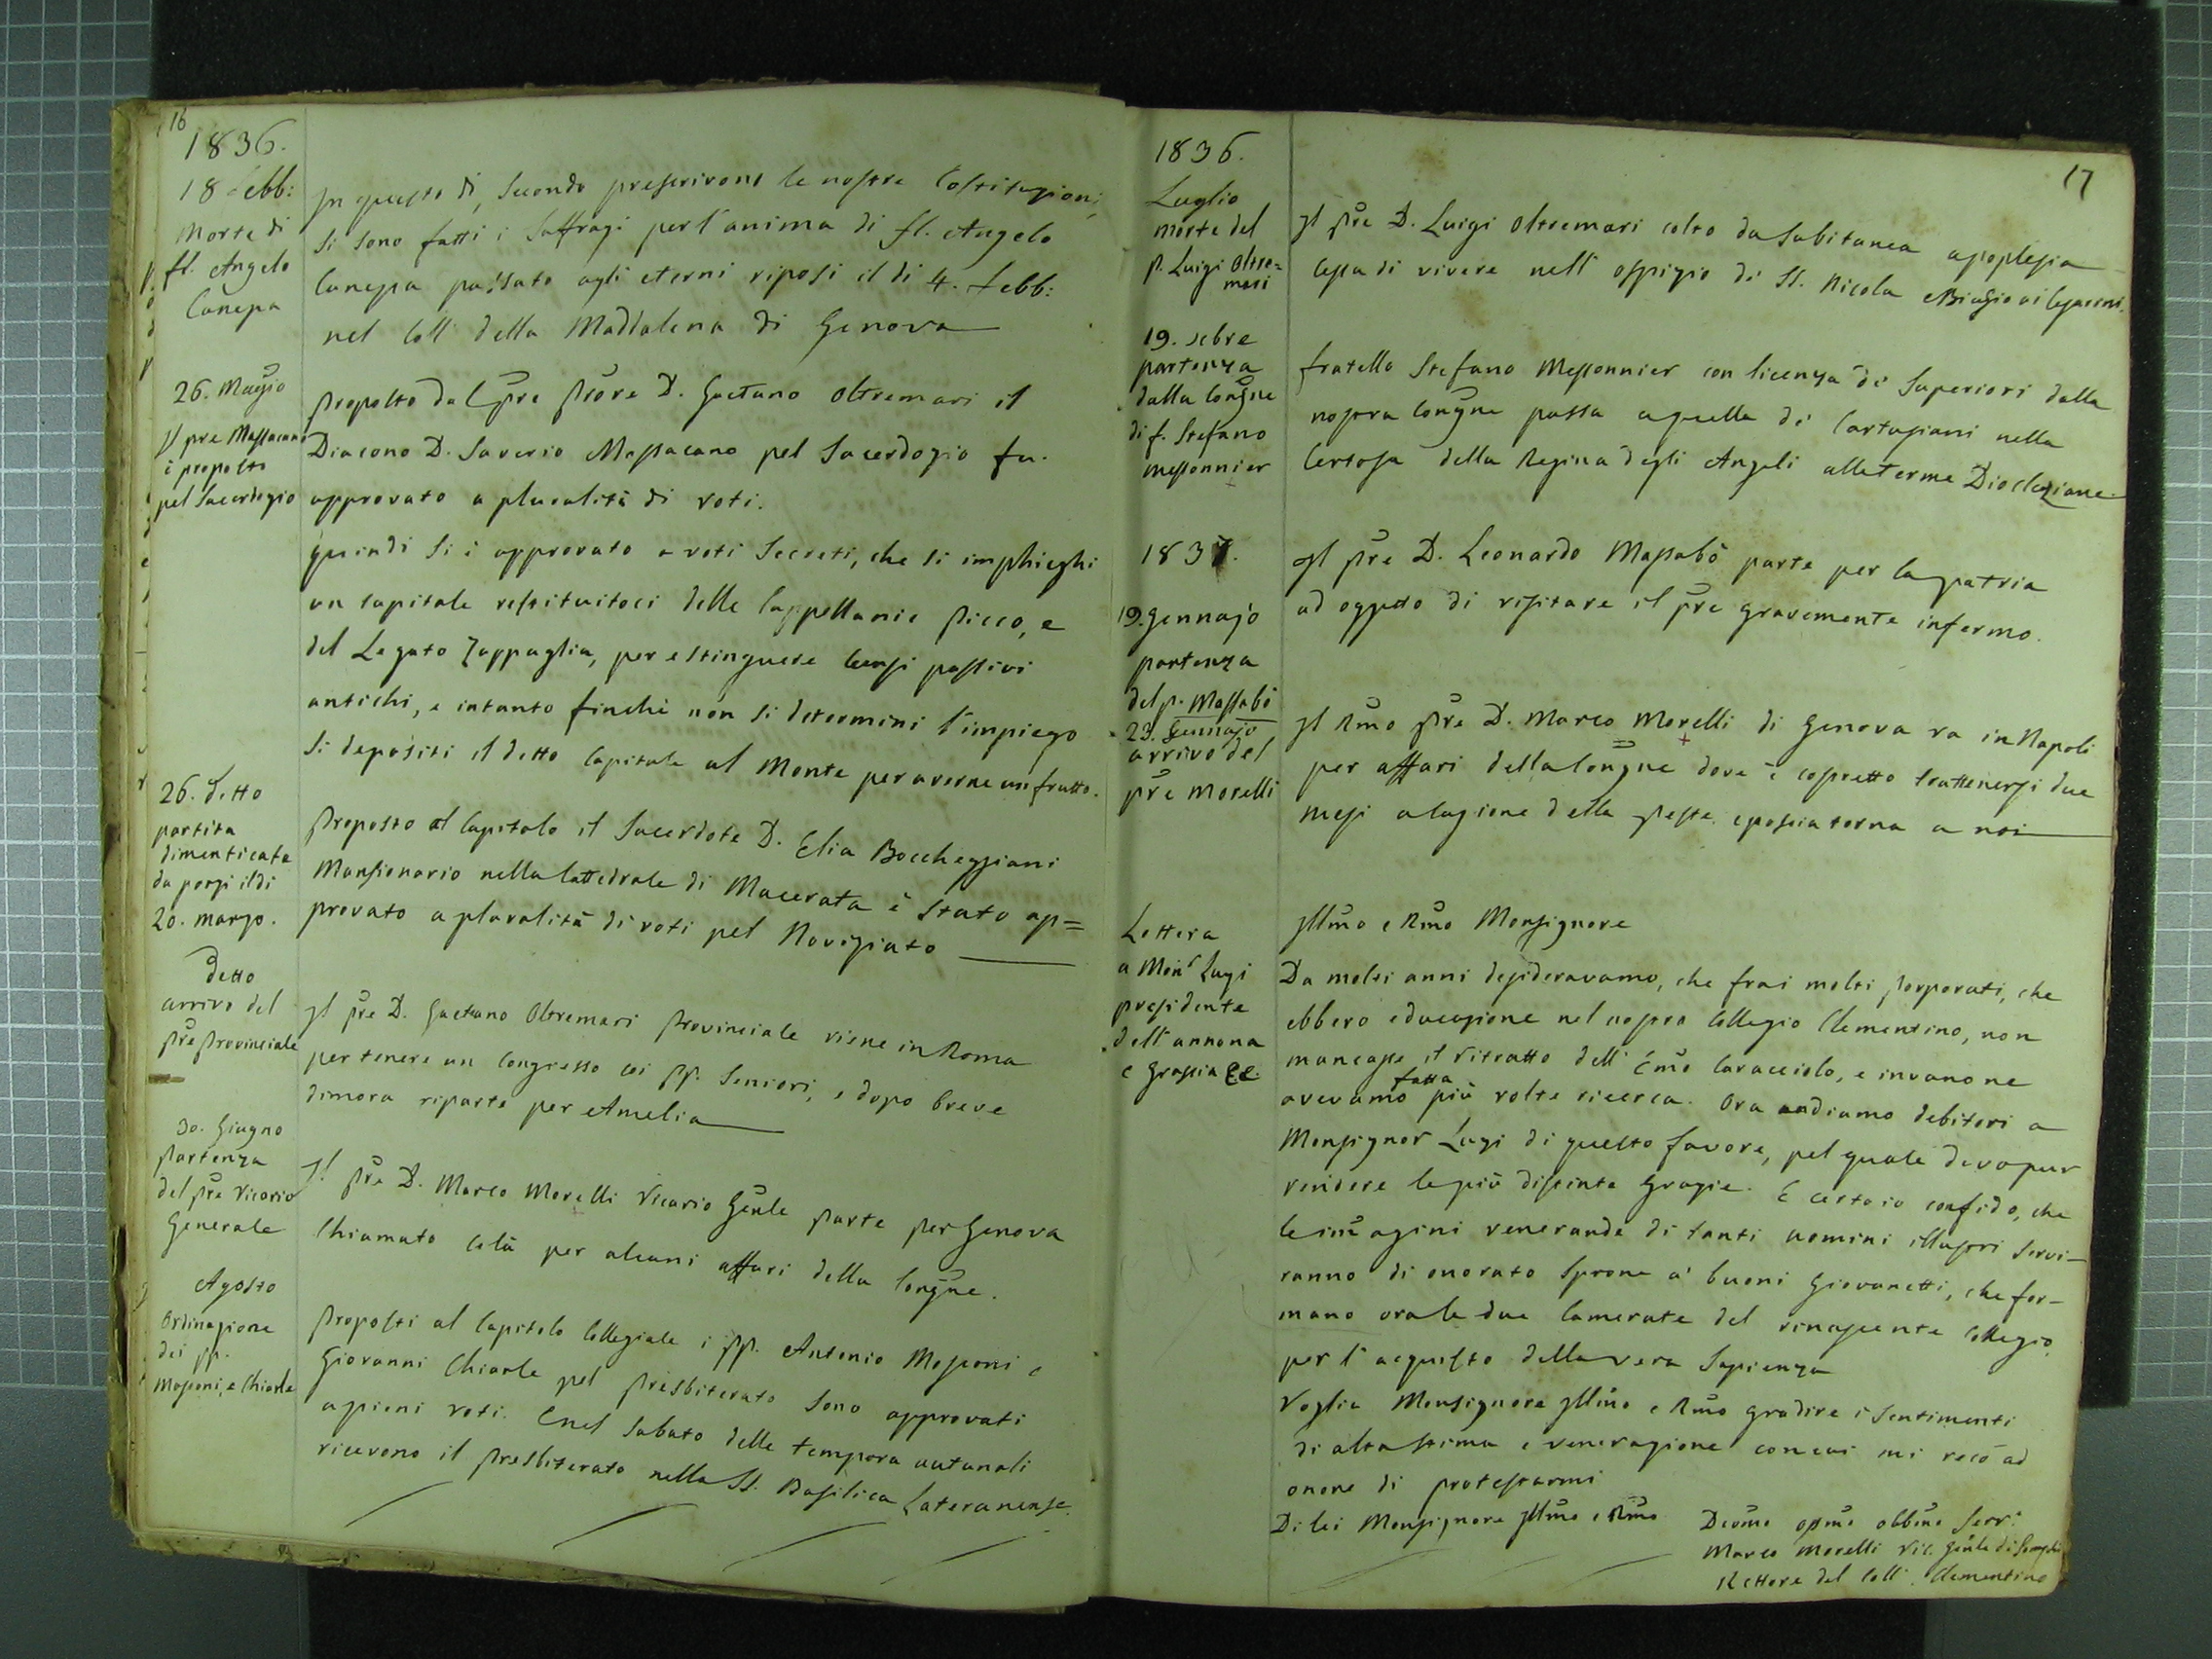 16
1836.
18 Febb:
Morte di
fl. Angelo
Canepa
In questo dì, Secondo prescrivono le nostre Costituzioni,
si sono fatti i Suffragi per l'anima di fl. Angelo
Canepa passato agli eterni riposi il dì 4. Febb:
nel Coll della Maddalena di Genova
26. Maggio
Il pre Massacano
è proposto
pel Sacerdozio
Proposto dal pre Prore D. Gaetano Oltremari il
Diacono D. Saverio Massacano pel Sacerdozio fu
approvato a pluralità di voti.
Quindi si è approvato a voti Secreti, che si implieghi
un capitale restituitoci delle Cappellanie Picco, e
del Legato Zappaglia, per estinguere Censi passivi
antichi, e intanto finchè non si determini l'impiego
si depositi il detto Capitale al Monte per averne un frutto.
26. detto
partita
dimenticata
da porsi il dì
20. marzo.
Proposto al Capitolo il Sacerdote D. Elia Boccheggiani
Mansionario nella Cattedrale di Macerata è stato ap=
provato a pluralità di voti pel Noviziato
Detto
arrivo del
pre Provinciale
Il pre D. Gaetano Oltremari Provinciale viene in Roma
per tenere un Congresso coi PP. Seniori, e dopo breve
dimora riparte per Amelia
30. Giugno
Partenza
del pre Vicario
Generale
Il pre D. Marco Morelli Vicario Genle parte per Genova
Chiamato colà per alcuni affari della Congne.
Agosto
Ordinazione
dei pp.
Mosconi, e Chiarle
Proposti al Capitolo Collegiale i PP. Antonio Mosconi e
Giovanni Chiarle pel Presbiterato sono approvati
a pieni voti. E nel Sabato delle tempora autunali
ricevono il Presbiterato nella SS. Basilica Lateranense.
17
1836.
Luglio
morte del
p. Luigi Oltre=
mari
Il pre D. Luigi Oltremari colto da subitanea apoplesia
cessa di vivere nell' ospizio di SS. Nicola e Biagio ai Cesarini.
19. 7bre
partenza
dalla Congne
di f. Stefano
Messonnier
fratello Stefano Messonnier con licenza de' Superiori dalla
nostra Congne passa a quella de' Cartusiani nella
Certosa della Regina degli Angeli alle Terme Diocleziane
1837.
19. Gennajo
partenza
del p. Massabò
Il pre D. Leonardo Massabò parte per la patria
ad oggetto di visitare il pre gravemente infermo.
23. Gennajo
arrivo del
pre Morelli
Il Rmo pre D. Marco Morelli di Genova va in Napoli
per affari della Congne dove è costretto trattenersi due
mesi a cagione della peste e poscia torna a noi
Lettera
a Monr Lugi
presidente
dell' annona
e Grascia
Illmo e Rmo Monsignore
Da molti anni desideravamo, che frai molti Porporati, che
ebbero educazione nel nostro Collegio Clementino, non
mancasse il ritratto dell' Emo Caracciolo, e invano ne
avevamo fatta più volte ricerca. Ora andiamo debitori a
Monsignor Lugi di questo favore, pel quale devo pur
rendere le più distinte Grazie. E certo io confido, che
le imagini venerande di tanti uomini illustri servi-
ranno di onorato Sprone a' buoni Giovanetti, che for-
mano ora le due Camerate del rinascente Collegio
per l' acquisto della vera Sapienza
Voglia Monsignore Illmo e Rmo gradire i Sentimenti
di alta stima e venerazione con cui mi reco ad
onore di protestarmi
Di lei Monsignore Illmo e Rmo
Devmo osmo obbmo Serv:
Marco Morelli Vic. Genle di
Rettore del Coll. Clementino